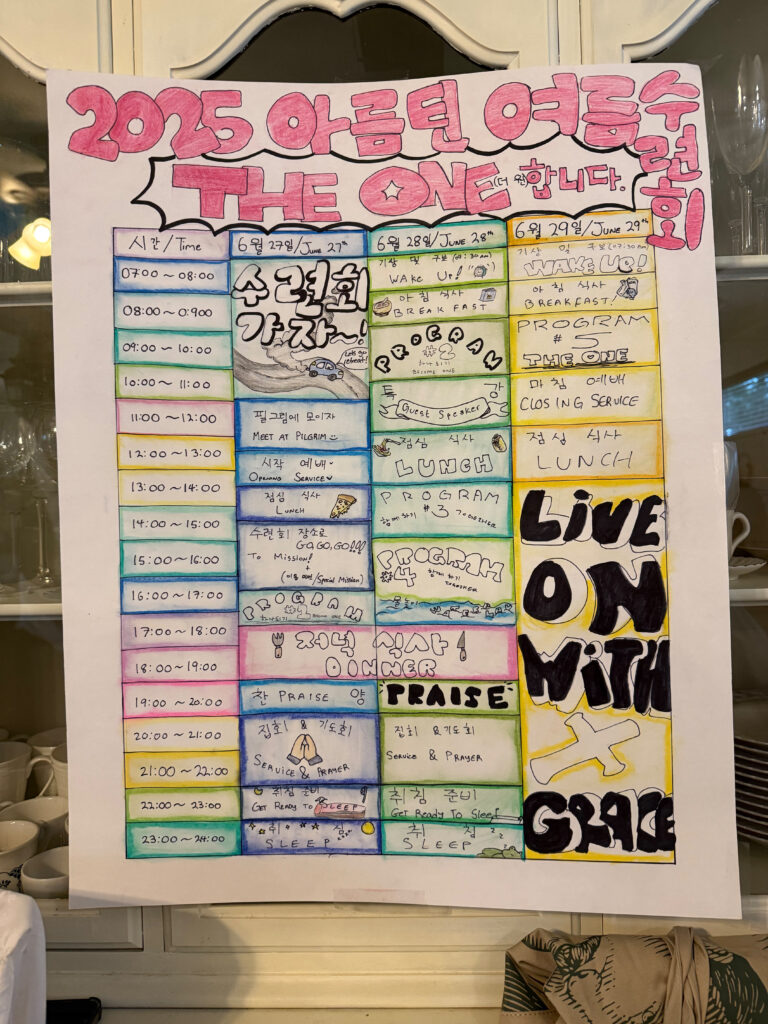 2025 아름틴 여름수련회
THE ONE (더 원) 합니다.
시간/Time
07:00 ~ 08:00
08:00 ~ 0:900
09:00 ~ 10:00
10:00 ~ 11:00
11:00 ~ 12:00
12:00 ~ 13:00
13:00 ~ 14:00
14:00 ~ 15:00
15:00 ~ 16:00
16:00 ~ 17:00
17:00 ~ 18:00
18:00 ~ 19:00
19:00 ~ 20:00
20:00 ~ 21:00
21:00 ~ 22:00
22:00 ~ 23:00
23:00 ~ 24:00
6월 27일/JUNE 27th
수련회
가자~!
Lets go
retreat!
필그림에 모이자
MEET AT PILGRIM
시작 예배
OPENING SERVICE
점심 식사
LUNCH
수련회 장소로
GO, GO, GO!!!
To Mission!
+
(이동 미션/Special Mission)
PROGRAM
하나되기 #1 BECOME ONE
저녁 식사
DINNER
찬 PRAISE 양
집회 & 기도회
SERVICE & PRAYER
취침 준비
GET READY TO SLEEP
취 침
SLEEP
6월 28일/JUNE 28th
기상 및
WAKE UP!
아침 식사
BREAKFAST
PROGRAM
#2
하나되기
BECOME ONE
특 강
Guest Speaker
점심 식사
LUNCH
PROGRAM
함께 하기 #3 TOGETHER
PROGRAM
#4 함께 하기
TOGETHER
물놀이
PRAISE
집회 & 기도회
SERVICE & PRAYER
취침 준비
Get Ready To Sleep
취 침
SLEEP
6월 29일/JUNE 29th
기상 및
WAKE UP!
아침 식사
BREAKFAST!
PROGRAM
#5
THE ONE
마침 예배
CLOSING SERVICE
점심 식사
LUNCH
LIVE
ON
WITH
GRACE